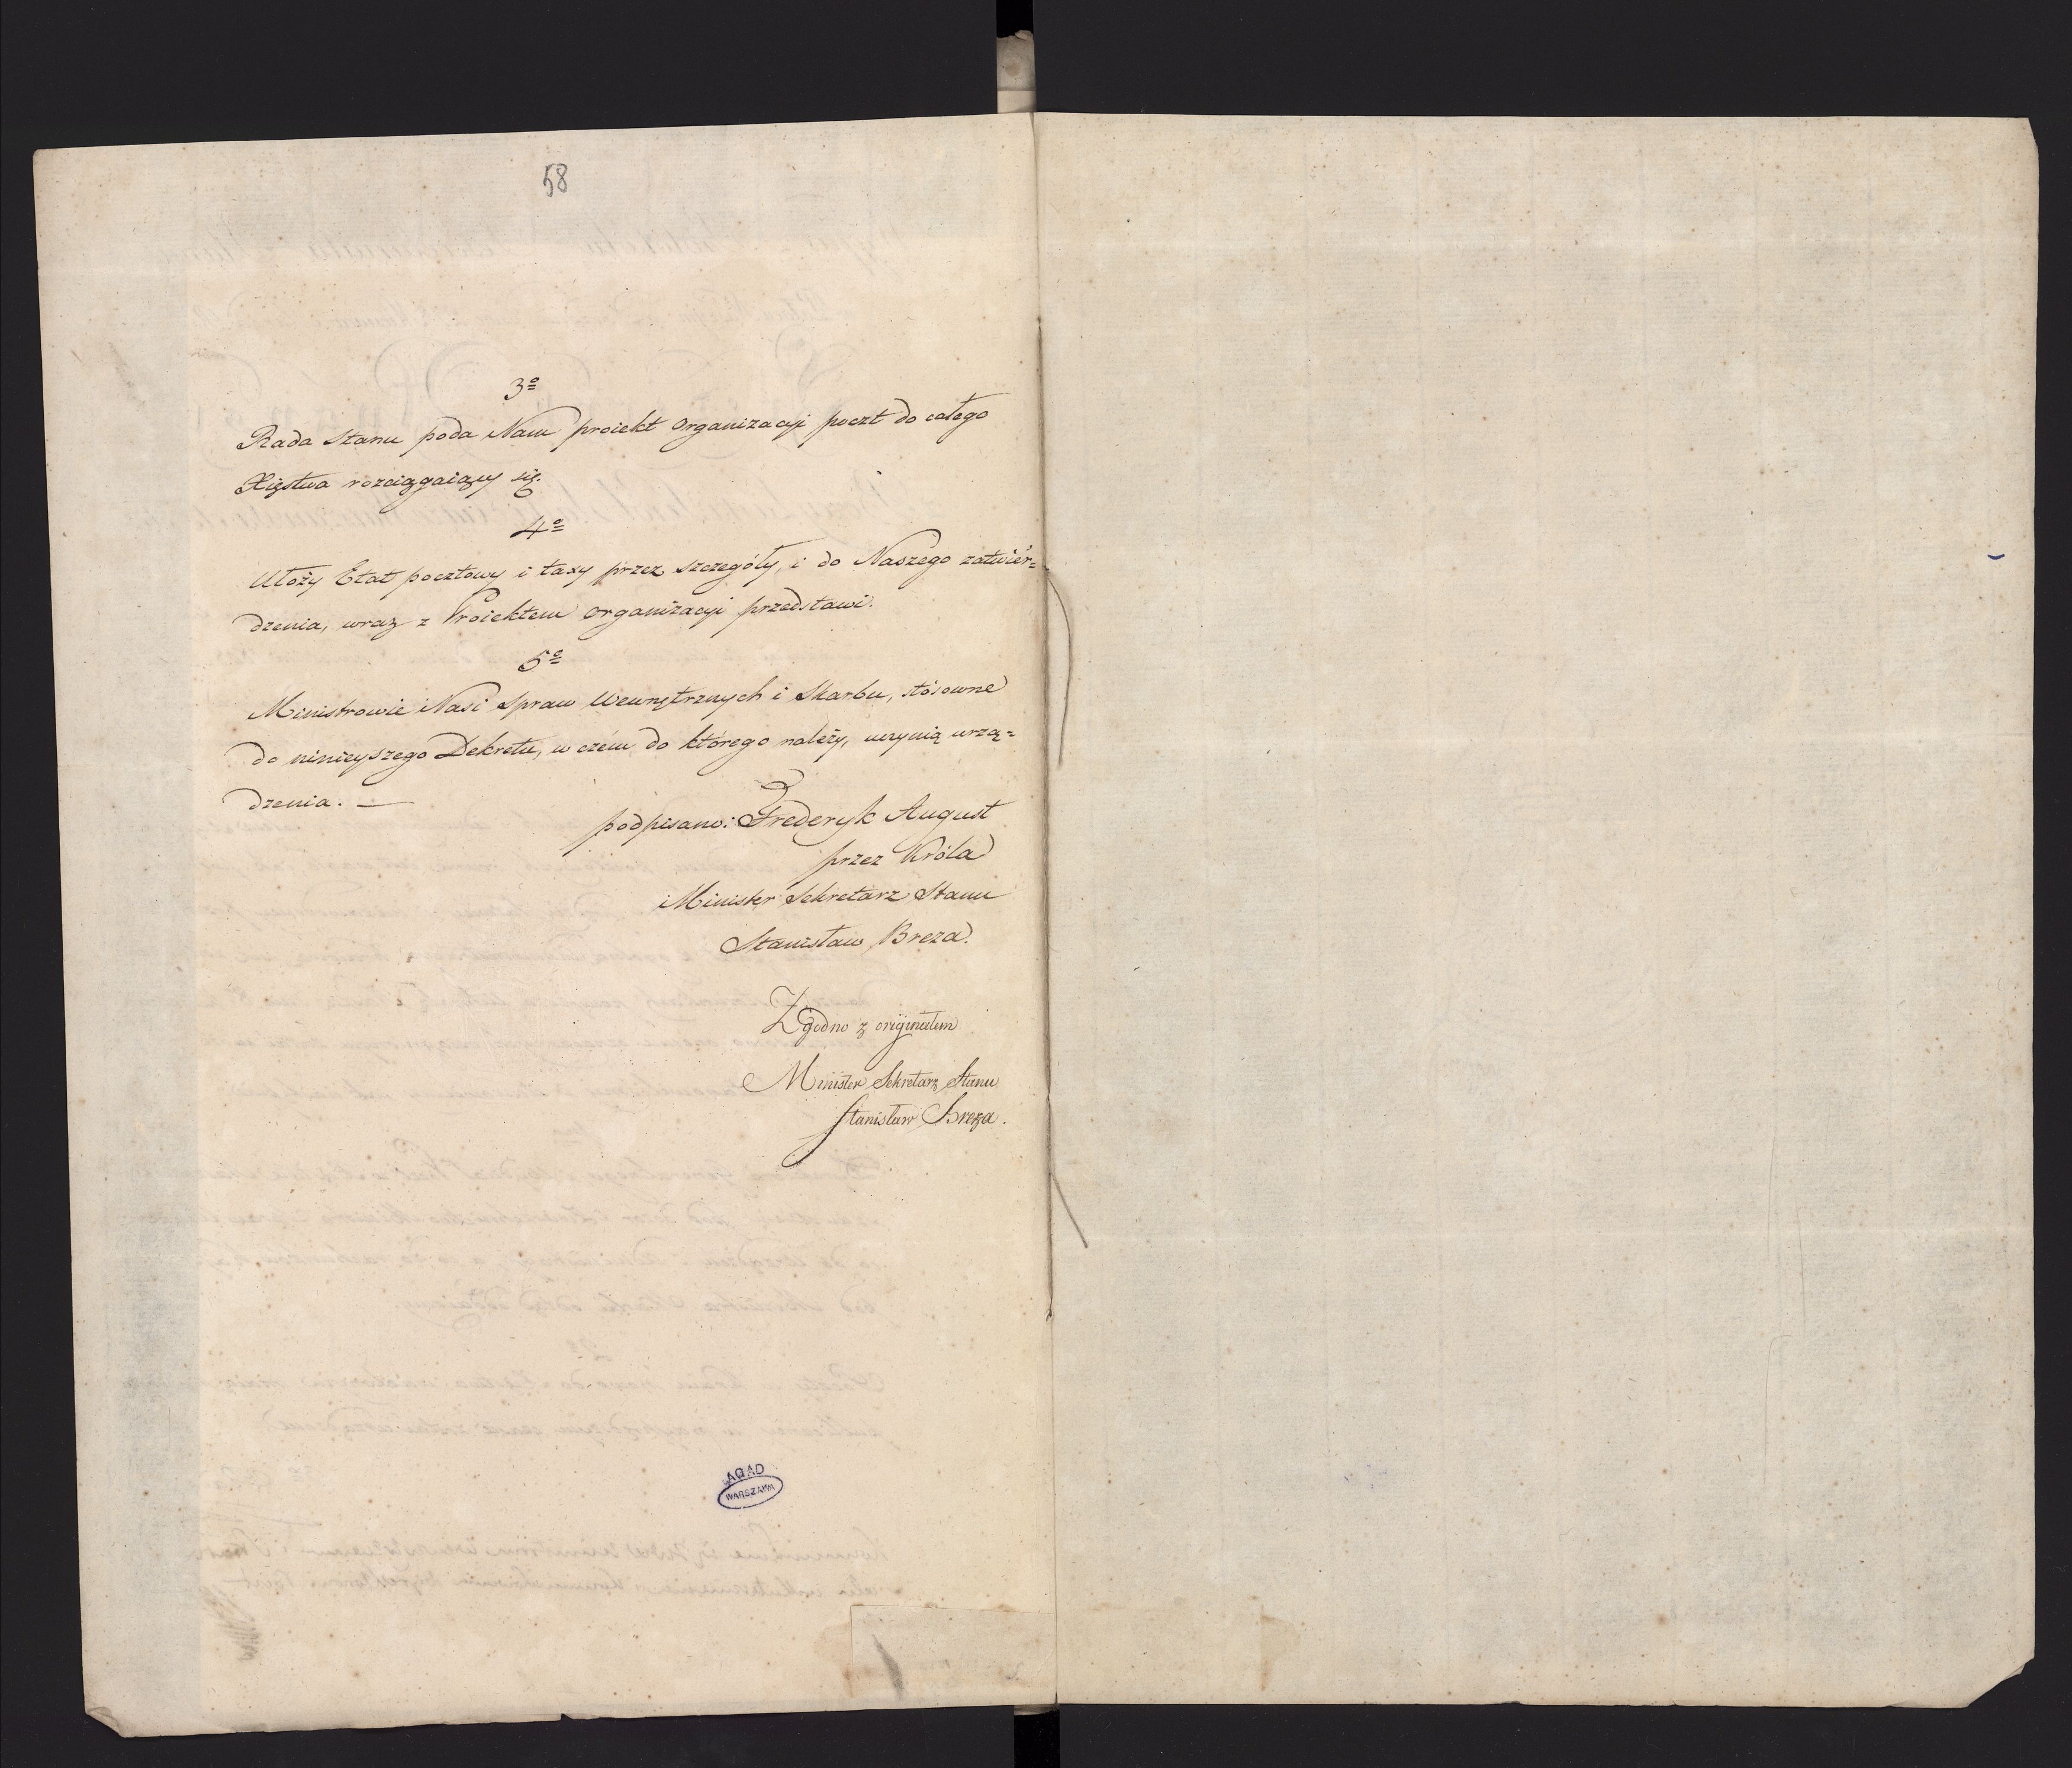 58
3º
Rada Stanu poda Nam proiekt Organizacyi poczt do całego
Xięstwa rozciągaiący się.
4º
Ułoży Etat pocztowy i taxy przez szczegóły, i do Naszego zatwiér=
dzenia, wraz z Proiektem Organizacyi przedstawi.
5º
Ministrowie Nasi Spraw Wewnętrznych i Skarbu, stósowne
do ninieyszego Dekretu, w czém do którego należy, uczynią urzą=
dzenia. —
podpisano: Frederyk August
przez Króla
Minister Sekretarz Stanu
Stanisław Breza.
Zgodno z oryginałem
Minister Sekretarz Stanu
Stanisław Breza.
AGAD
WARSZAWA